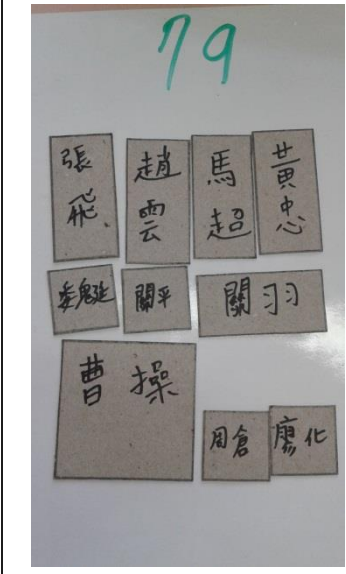 79
張飛
趙雲
馬超
黃忠
魏延
關平
關羽
曹操
周倉
廖化